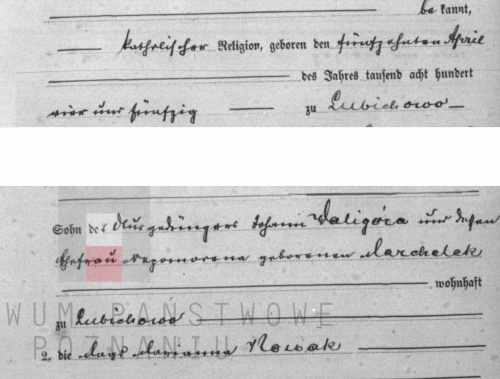 be kannt,
katholischer Religion, geboren den fünfzehnten April
des Jahres tausend acht hundert
vier und fünfzig zu Lubichowo
Sohn des Ausgedingers Johann Waligóra und dessen
Ehefrau Nepomocena geborenen Marchelek
wohnhaft
zu Lubichowo
2. die Magd Marianna Nowak
WUM PAŃSTWOWE
POZNANIU